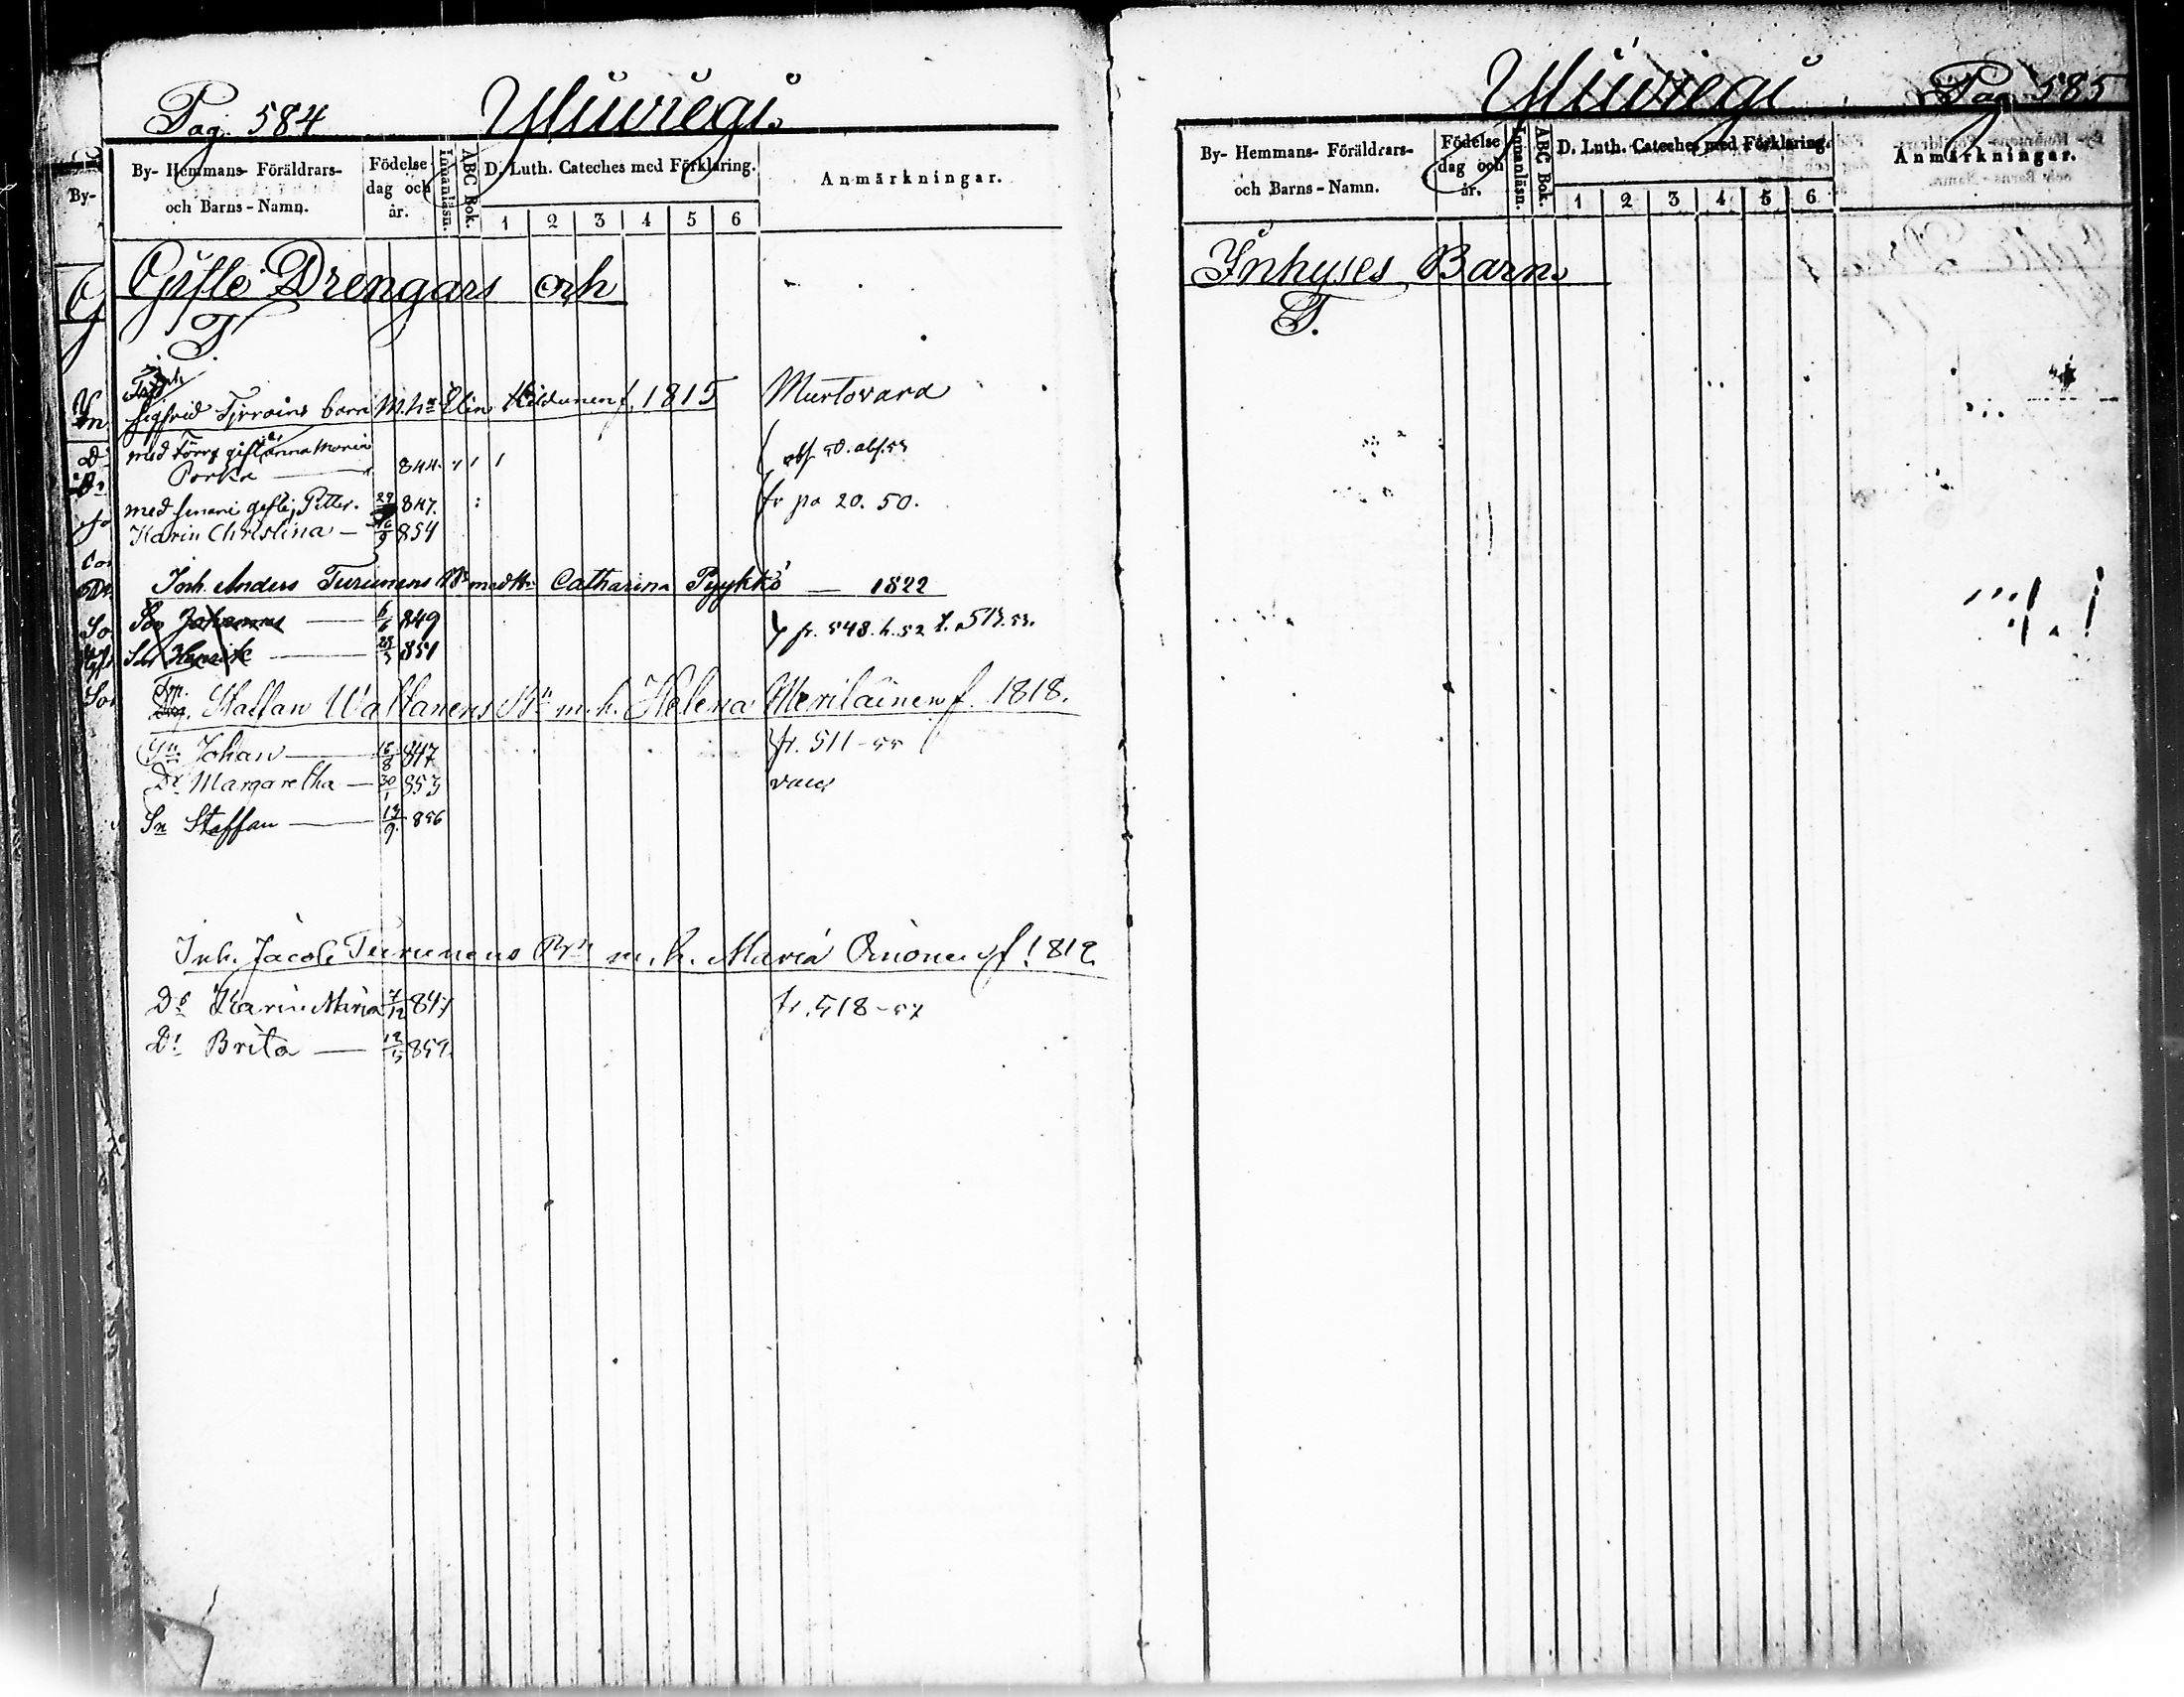 Pag. 584
Yliuviegi.
By- Hemmans- Föräldrars- och Barns-Namn.
Födelse dag och år.
Innanläsn.
ABC Bok.
D. Luth. Cateches med Förklaring.
1 2 3 4 5 6
Anmärkningar.
Gifte Drengars och
T
Sigfrid barn M. h. Elin f. 1815 Murtovara
med Förra gifte, Anna Maria
Porka 844.
med senare gifte, Petter. 847. fr pa 20. 50.
Karin Christina 854
Inh. Anders Turunens Bn med Hu Catharina Pyykkö — 1822
Son Johannes — 849 fr. 548. h. 52
Son Henrik — 851
Staffan Waltanens Bn m. h. Helena Meriläinen f. 1818.
Sn Johan — 847 fr. 511-55
Dr Margaretha — 30/1 853
Sn Staffan — 13/9 856
Inh. Jacob Turunens Bn m. h. Maria f. 1812
Dr Karin Maria 7/12 847 fr. 518-57
Dr Brita —
Yliuviegi
Pag 585
By- Hemmans- Föräldrars- och Barns-Namn.
Födelse dag och år.
Innanläsn.
ABC Bok.
D. Luth. Cateches med Förklaring.
1 2 3 4 5 6
Anmärkningar.
Inhyses Barn.
T.